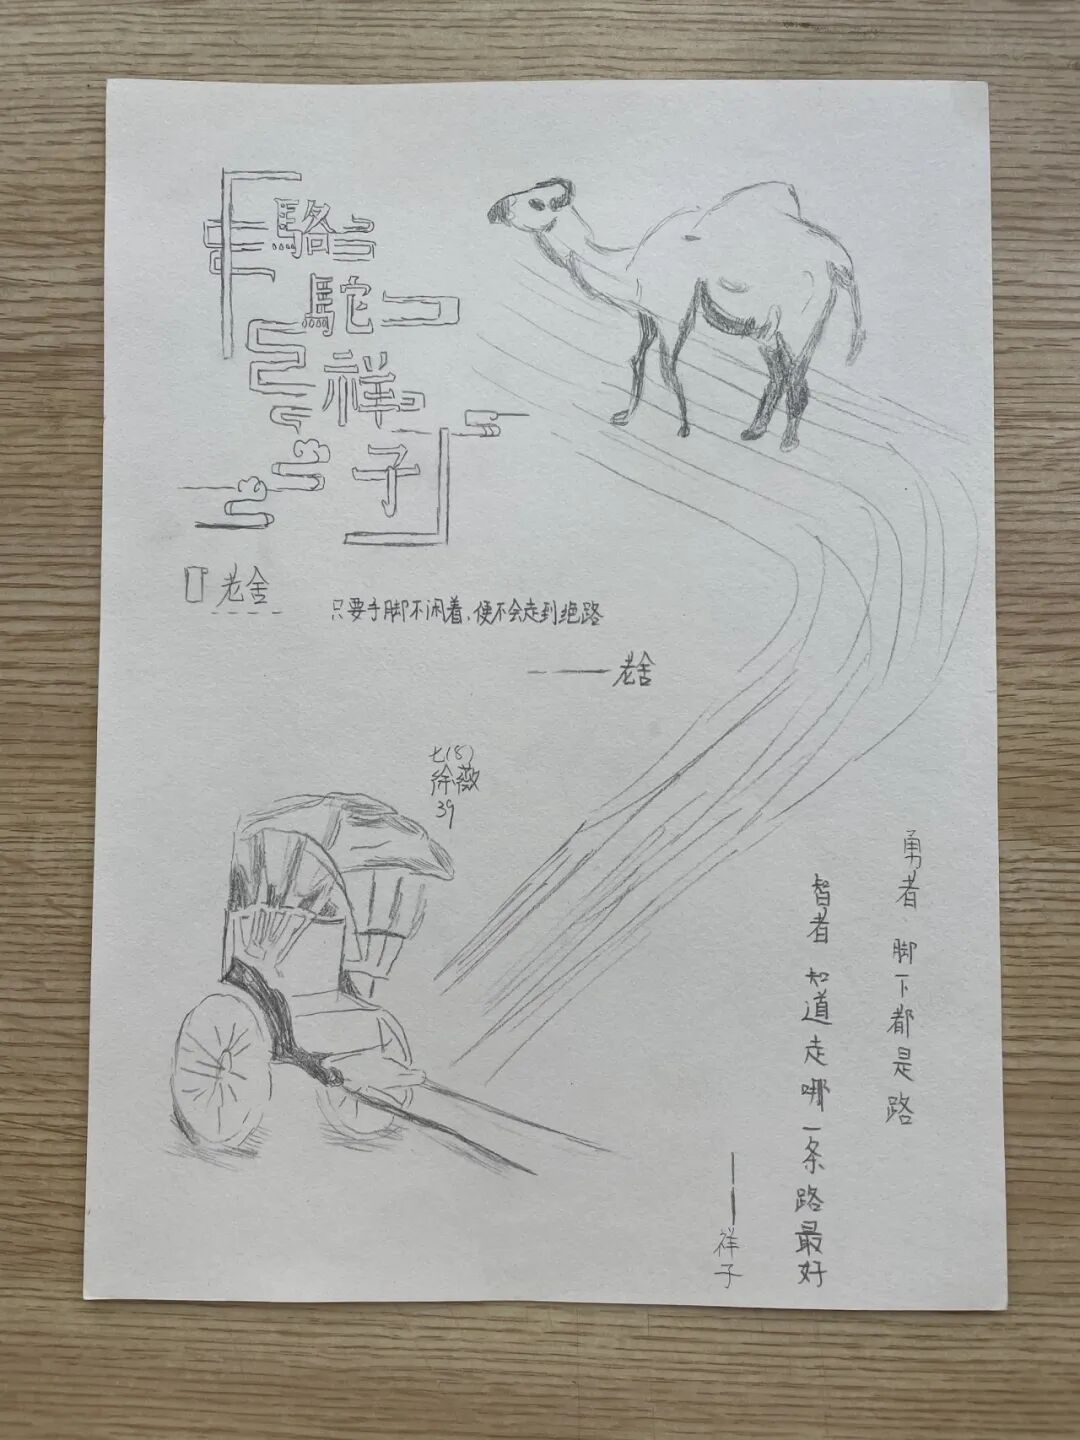 駱
駝
祥
子
老舍
只要手脚不闲着,便不会走到绝路
——老舍
七(8)
徐薇
39
勇者 脚下都是路
智者 知道走哪一条路最好
——祥子